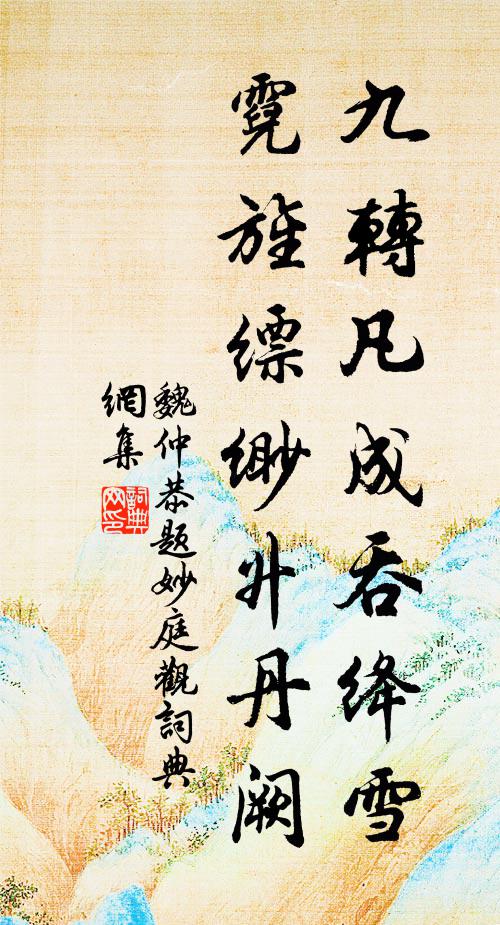 九轉凡成吞絳雪
霓旌縹緲升丹闕
魏仲恭題妙庭觀詞典
網集
詞典
网印